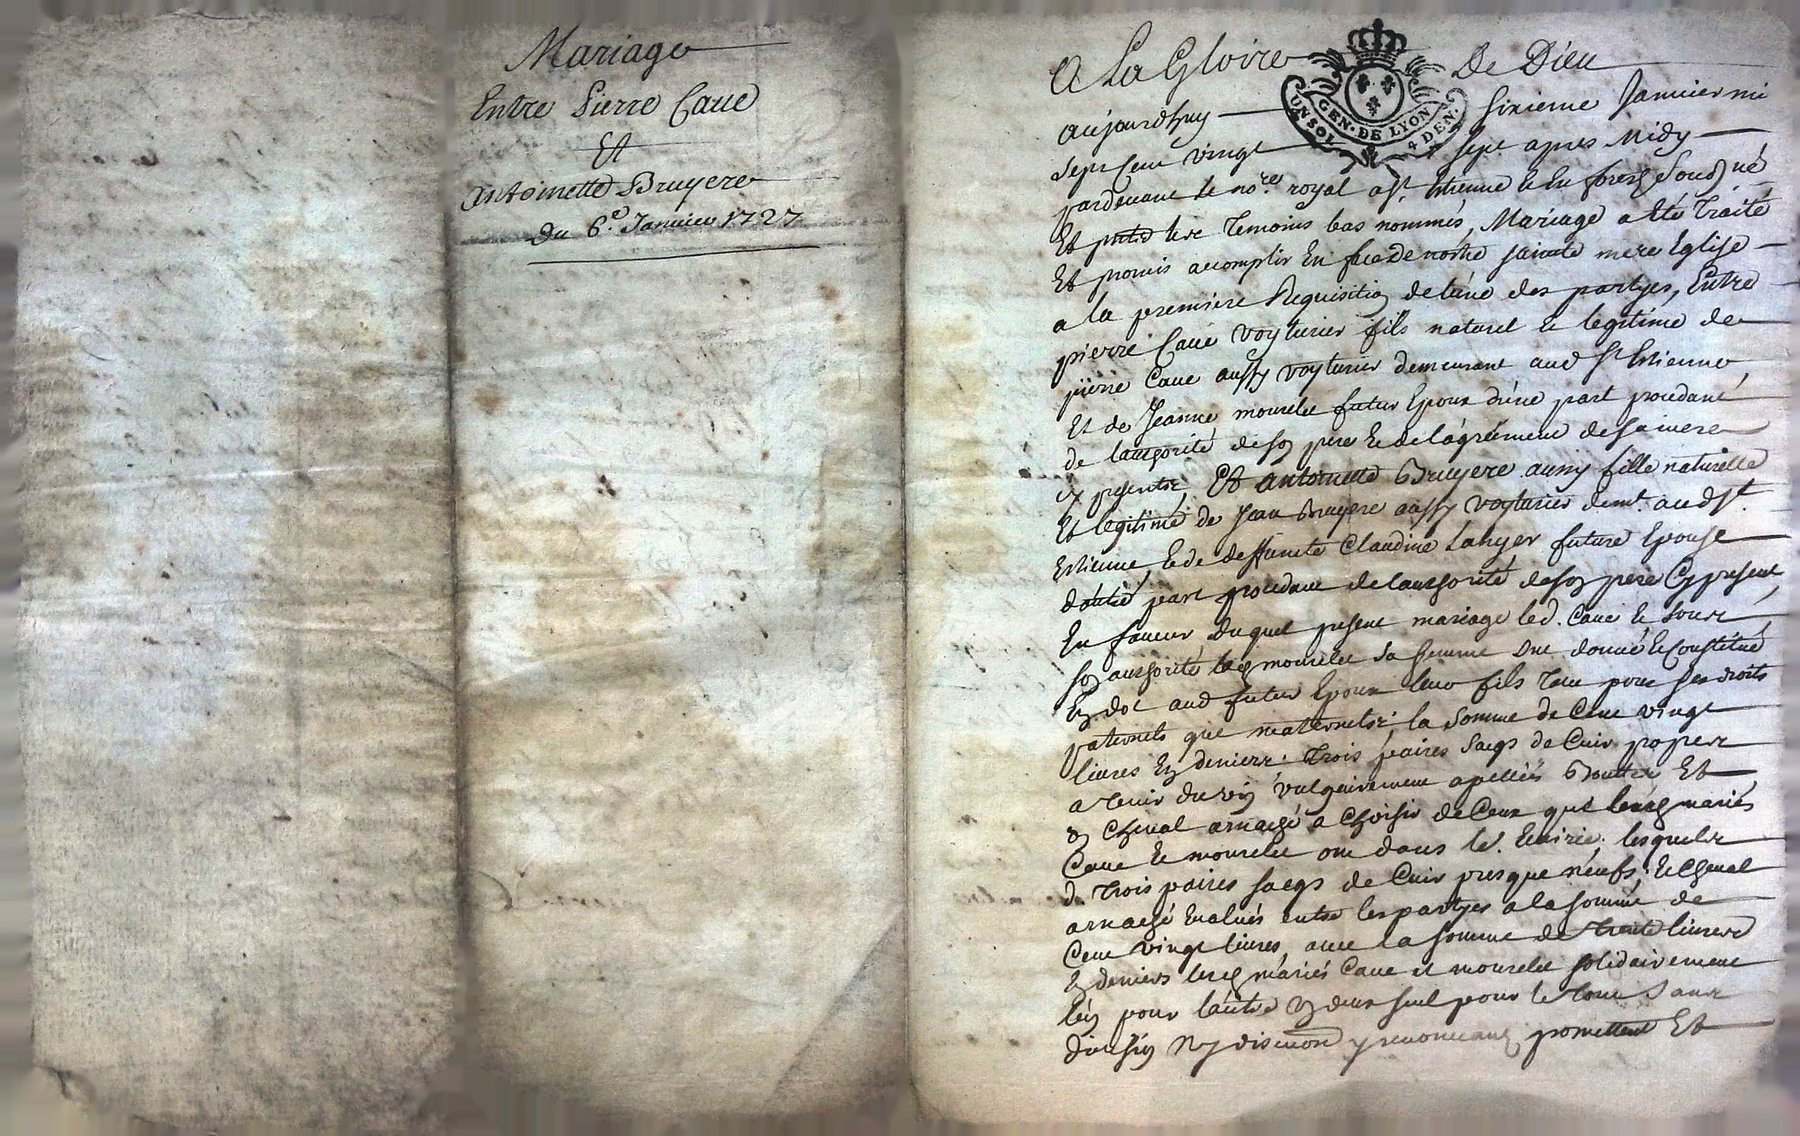 Mariage
Entre Pierre Caue
Et
Antoinette Bruyere
Du 6.e Januier 1727
A La Gloire De Dieu
GEN. DE LYON
UN SOL 4 DEN.
aujourdhuy sixieme Januier mi
sept Cent vingt sept apres Midy
pardeuant le no.re royal a St. Etienne en forest Sousné
Et temoins bas nommés, Mariage a été Traité
Et promis accomplir En face de nostre sainte mere Eglise
a la premiere Requisition de l'une des partyes, Entre
pierre Caue voyturier fils naturel et legitime de
pierre Caue aussy voyturier demeurant aud St. Etienne
Et de Jeanne mourelet futur Epoux d'une part procedant
de l'authorité de son pere et de l'agréement de sa mere
cy presents, Et Antoinette Bruyere aussy fille naturelle
Et legitime de Jean Bruyere aussy voyturier demt. aud St.
Etienne et de deffuncte Claudine Lanyer future Epouse
d'autre part procedant de l'authorité de son pere Cy present,
En faueur duquel present mariage led. Caue et sous
son authorité mourelet sa femme ont donné et Constitué
En dot aud futur Epoux leur fils tant pour ses droits
paternels que maternels la somme de Cent vingt
liures En deniers trois paires sacqs de Cuir propres
a tenir du vin vulgairement apellés Boutes Et
un Cheual arnaché a choisir de Ceux que mariés
Caue et mourelet ont dans le. Ecuirie, lesquels
d. trois paires sacqs de Cuir presque neufs et Cheual
arnaché Eualués entre les partyes a la somme de
Cent vingt liures, auec la somme de trente liures
En deniers mariés Caue et mourelet solidairement
l'un pour l'autre un deux seul pour le tout sans
diuision Ny discution y renonceants promettent Et